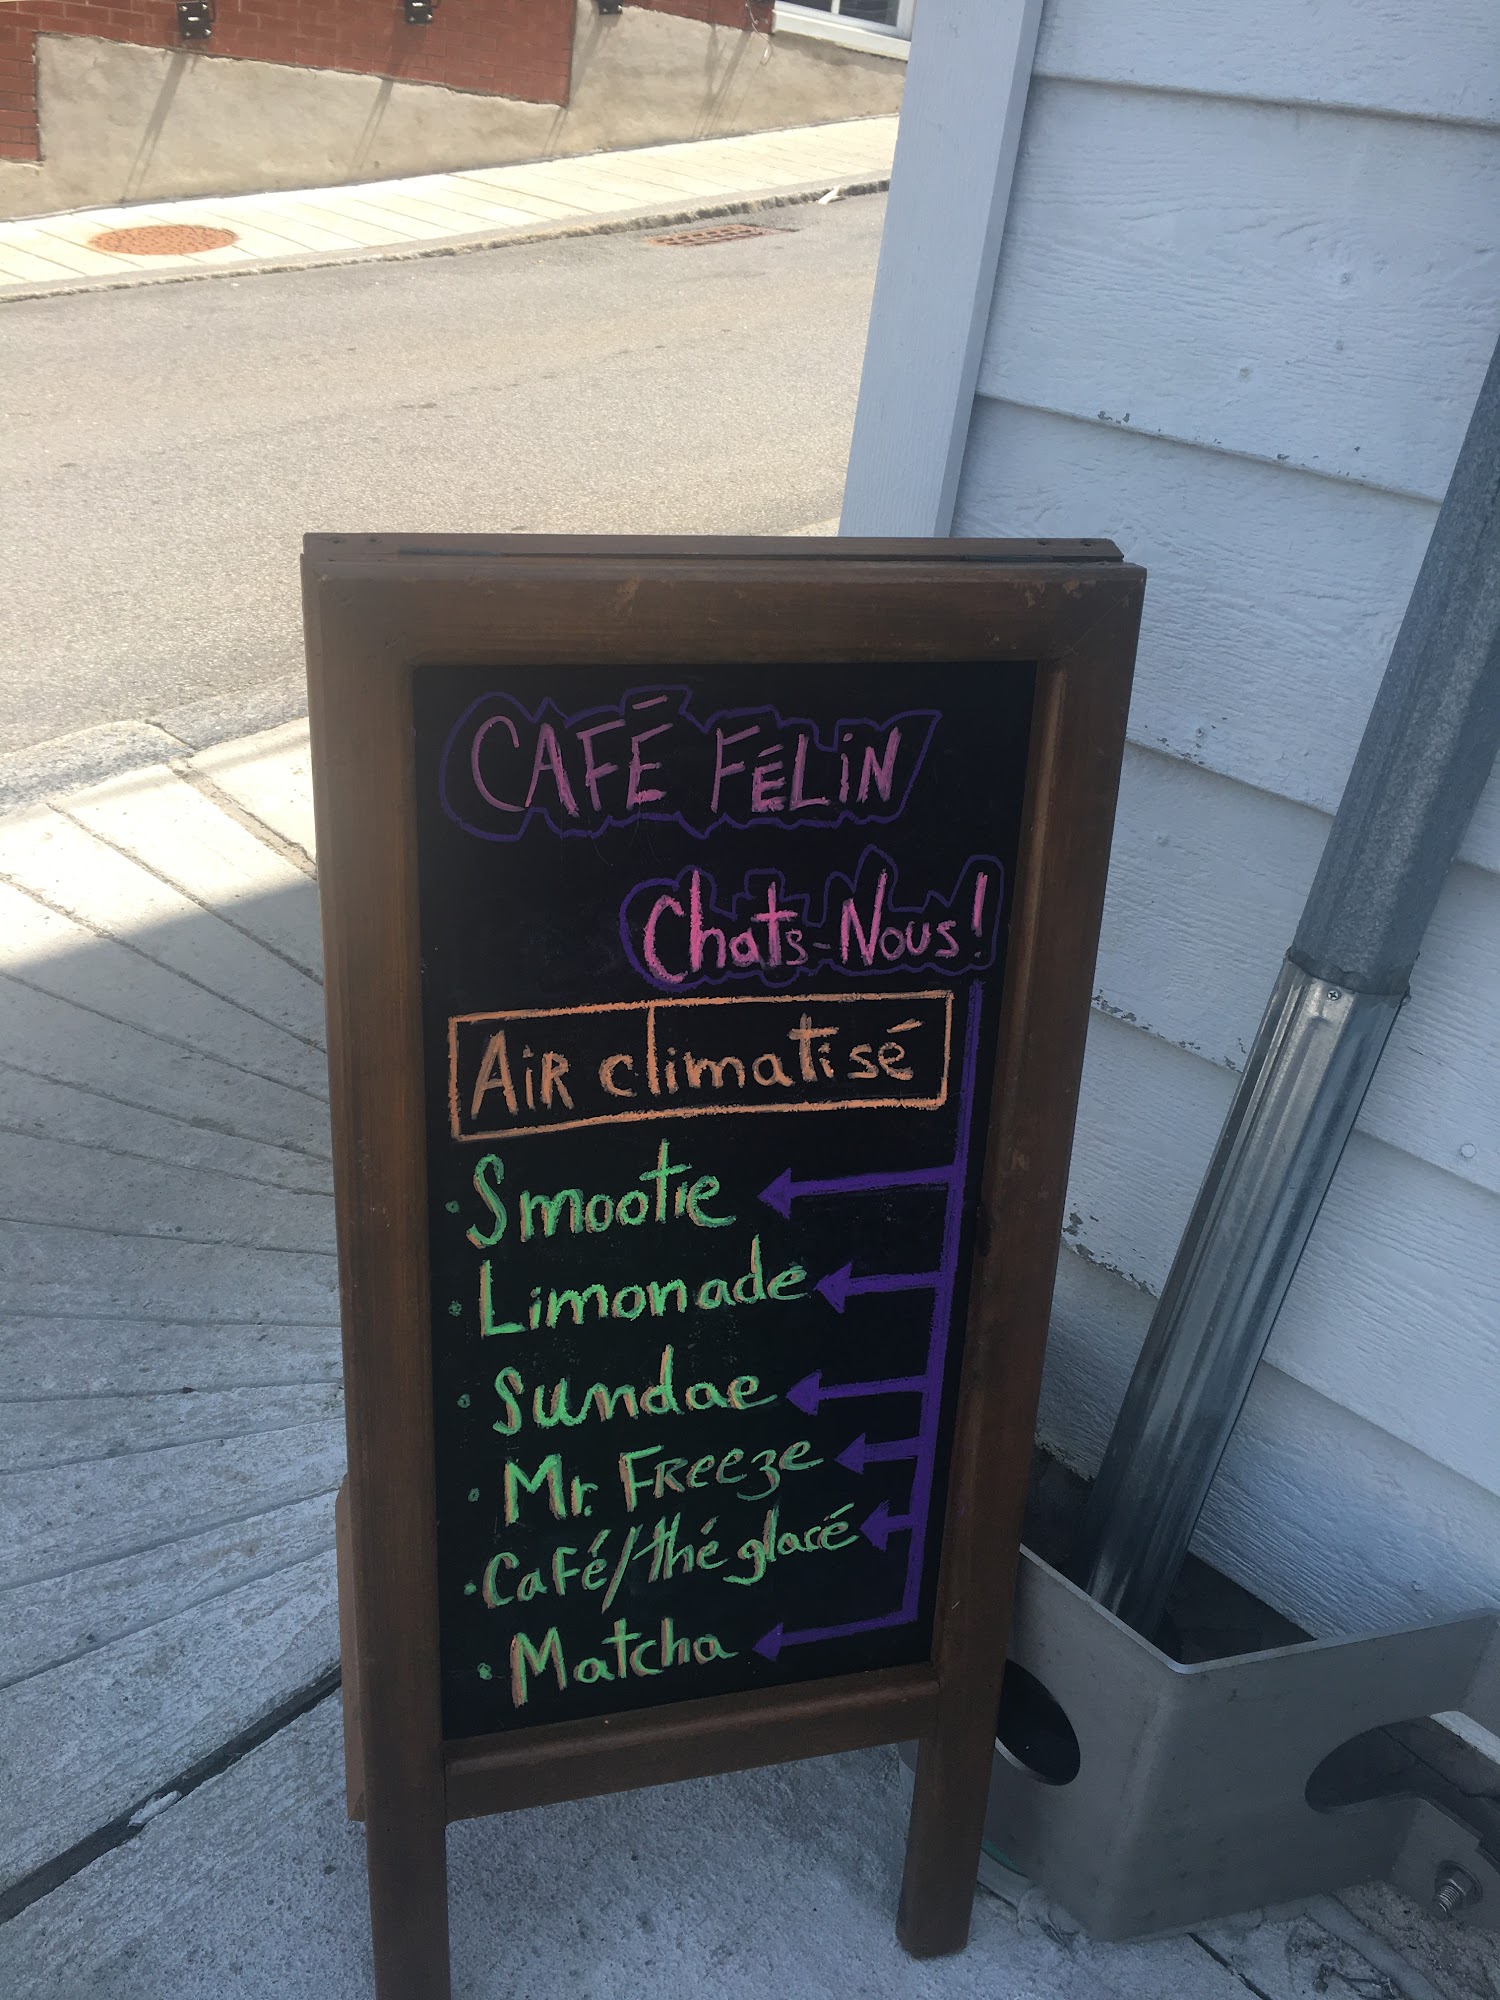 CAFÉ FÉLiN
Chats-Nous!
AiR climatisé
· Smootie
· Limonade
· Sundae
· Mr. FREEZE
· Café/thé glacé
· Matcha